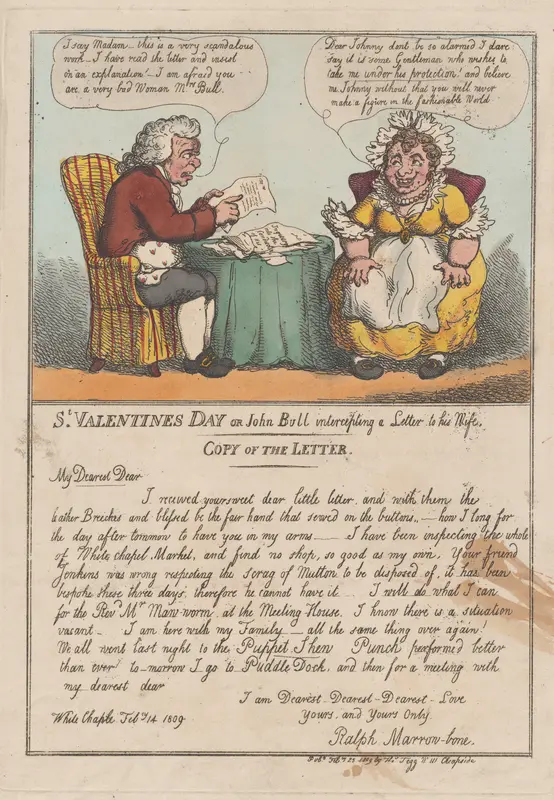 I say Madam - this is a very scandalous
work - I have read the letter and insist
on an explanation - I am afraid you
are a very bad Woman Mrs Bull.
Dear Johnny dont be so alarmed I dare
say it is some Gentleman who wishes to
take me under his protection and believe
me Johnny without that you will never
make a figure in the fashionable World
St. VALENTINES DAY or John Bull intercepting a Letter to his Wife.
COPY OF THE LETTER.
My Dearest Dear
I recieved your sweet dear little letter and with them the
leather Breeches and blessed be the fair hand that sewed on the buttons, - how I long for
the day after tomorrow to have you in my arms — I have been inspecting the whole
of White chapel Market, and find no shop, so good as my own, Your friend
Jenkins was wrong respecting the scrag of Mutton to be disposed of, it has been
bespoke these three days, therefore he cannot have it — I will do what I can
for the Revd Mr Maw-worm, at the Meeting House. I know there is a situation
vacant - I am here with my Family — all the same thing over again!
We all went last night to the Puppet Shew Punch perform'd better
than ever to-morrow I go to Puddle Dock, and then for a meeting with
my dearest dear
I am Dearest - Dearest - Dearest - Love
Yours, and Yours Only.
White Chaple Feby 14 1809
Ralph Marrow-bone.
Pubd Feby 25 1809 by Thos Tegg No 111 Cheapside